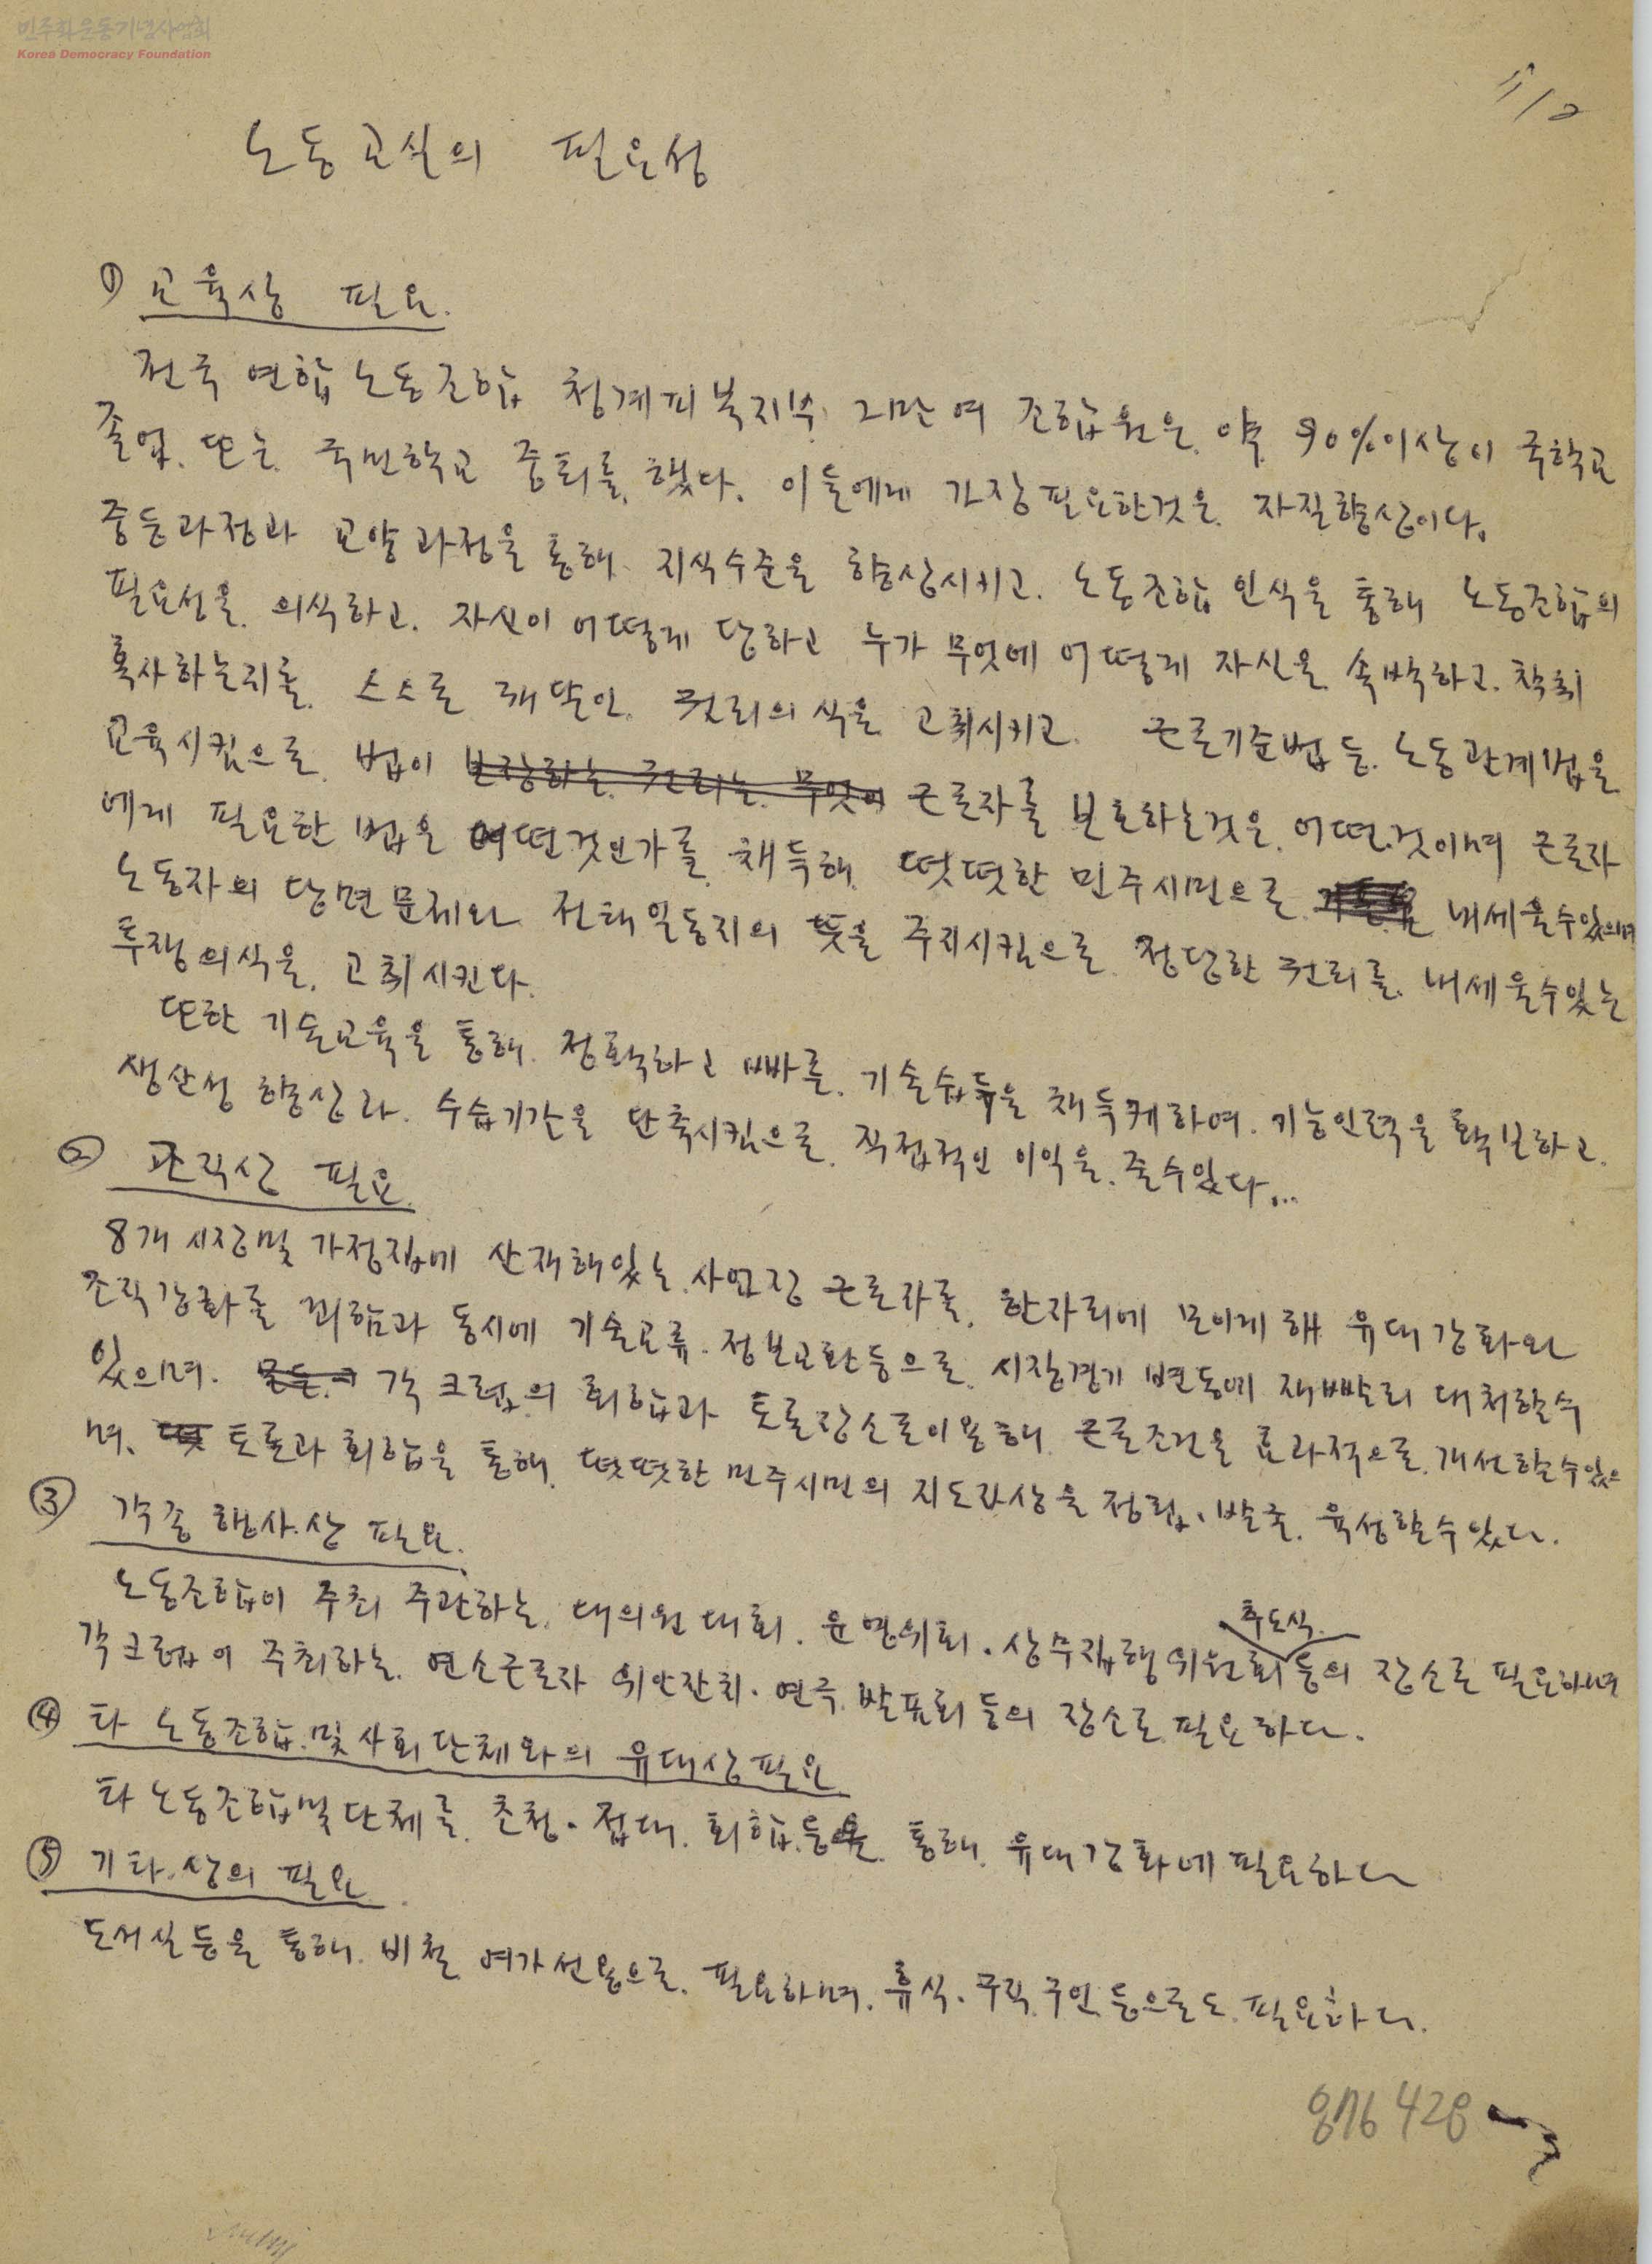 민주화운동기념사업회
Korea Democracy Foundation
노동교실의 필요성
① 교육상 필요.
전국 연합 노동조합 청계피복지부. 2만여 조합원은. 약. 90%이상이 국학교
졸업. 또는. 국민학교 중퇴를. 했다. 이들에게 가장필요한것은. 자질향상이다.
중등과정과 교양과정을 통해. 지식수준을 향상시키고. 노동조합 인식을 통해 노동조합의
필요성을. 의식하고. 자신이 어떻게 당하고 누가 무엇에 어떻게 자신을. 속박하고. 착취
혹사하는지를. 스스로 깨달아. 권리의식을. 고취시키고. 근로기준법 등. 노동관계법을
교육시킴으로. 법이 보장하는. 권리는. 무엇이 근로자를 보호하는것은. 어떤.것이며 근로자
에게 필요한 법은 어떤것인가를. 채득해. 떳떳한 민주시민으로. 내세울수있으며
노동자의 당면문제와 전태일동지의 뜻을 주지시킴으로. 정당한 권리를. 내세울수있는
투쟁의식을. 고취시킨다.
또한 기술교육을 통해. 정확하고 빠른. 기술습득을 채득케하여. 기능인력을 확보하고.
생산성 향상과. 수습기간을 단축시킴으로. 직접적인 이익을. 줄수있다...
② 조직상 필요.
8개 시장및 가정집에 산재해있는.사업장 근로자를. 한자리에 모이게해 유대강화와
조직강화를 꾀함과 동시에 기술교류. 정보교환등으로. 시장경기 변동에 재빨리 대처할수
있으며. 각 크럽의 회합과 토론장소로이용해. 근로조건을 효과적으로.개선할수있으
며. 토론과 회합을 통해. 떳떳한 민주시민의 지도자상을 정립. 발굴. 육성할수있다.
③ 각종 행사.상 필요.
노동조합이 주최 주관하는. 대의원대회. 운영위회. 상무집행위원회 추도식. 등의 장소로 필요하며
각크럽이 주최하는. 연소근로자 위안잔치. 연극.발표회 등의 장소로.필요하다.
④ 타 노동조합.및사회단체와의 유대상필요
타 노동조합및단체를. 초청. 접대. 회합.등을. 통해. 유대강화에필요하다
⑤ 기타.상의 필요.
도서실등을 통해. 비철. 여가선용으로. 필요하며. 휴식. 구직.구인.등으로도.필요하다.
876428